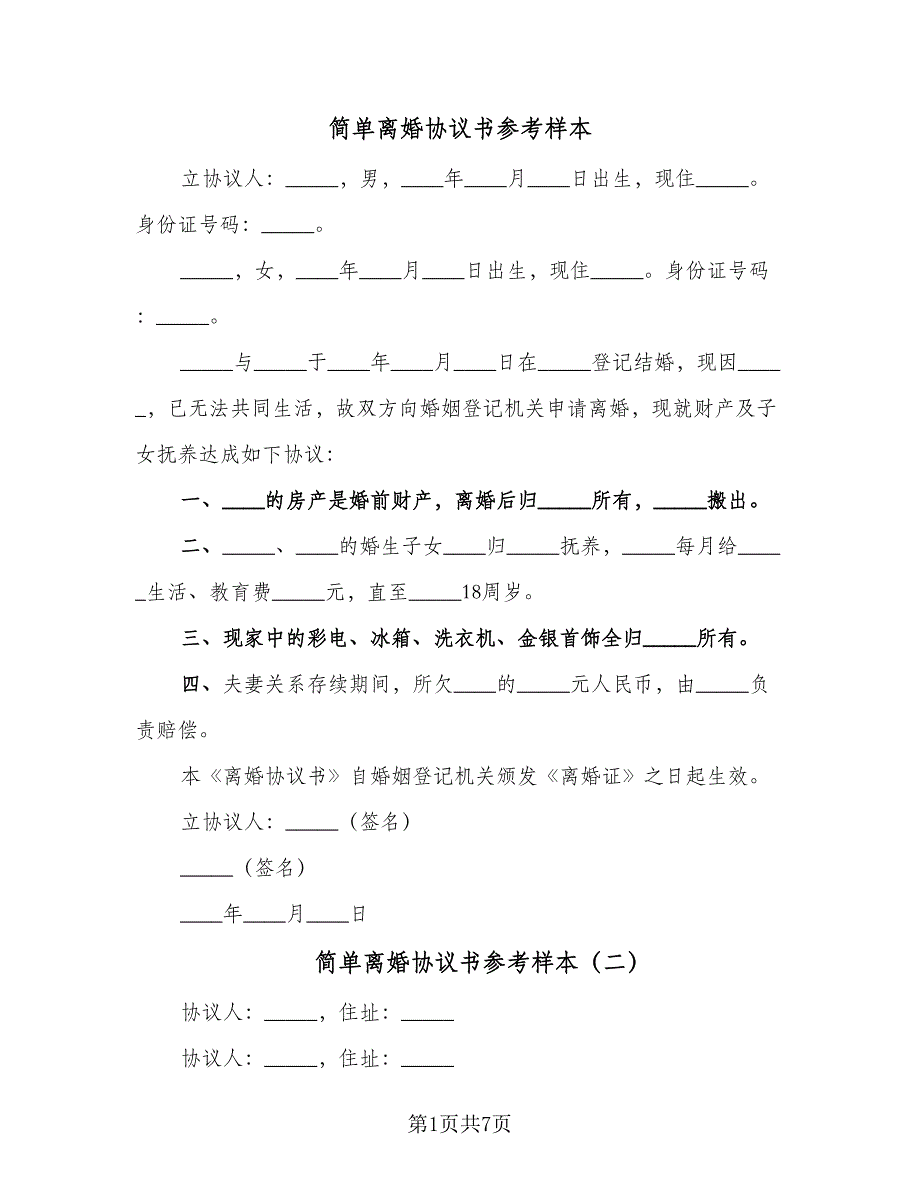 简单离婚协议书参考样本
立协议人：_____，男，____年____月____日出生，现住_____。
身份证号码：_____。
_____，女，____年____月____日出生，现住_____。身份证号码
：_____。
_____与_____于____年____月____日在_____登记结婚，现因____
_，已无法共同生活，故双方向婚姻登记机关申请离婚，现就财产及子
女抚养达成如下协议：
一、____的房产是婚前财产，离婚后归_____所有，_____搬出。
二、_____、____的婚生子女____归_____抚养，_____每月给____
_生活、教育费_____元，直至_____18周岁。
三、现家中的彩电、冰箱、洗衣机、金银首饰全归_____所有。
四、夫妻关系存续期间，所欠____的_____元人民币，由_____负
责赔偿。
本《离婚协议书》自婚姻登记机关颁发《离婚证》之日起生效。
立协议人：_____（签名）
_____（签名）
____年____月____日
简单离婚协议书参考样本（二）
协议人：_____，住址：_____
协议人：_____，住址：_____
第1页共7页